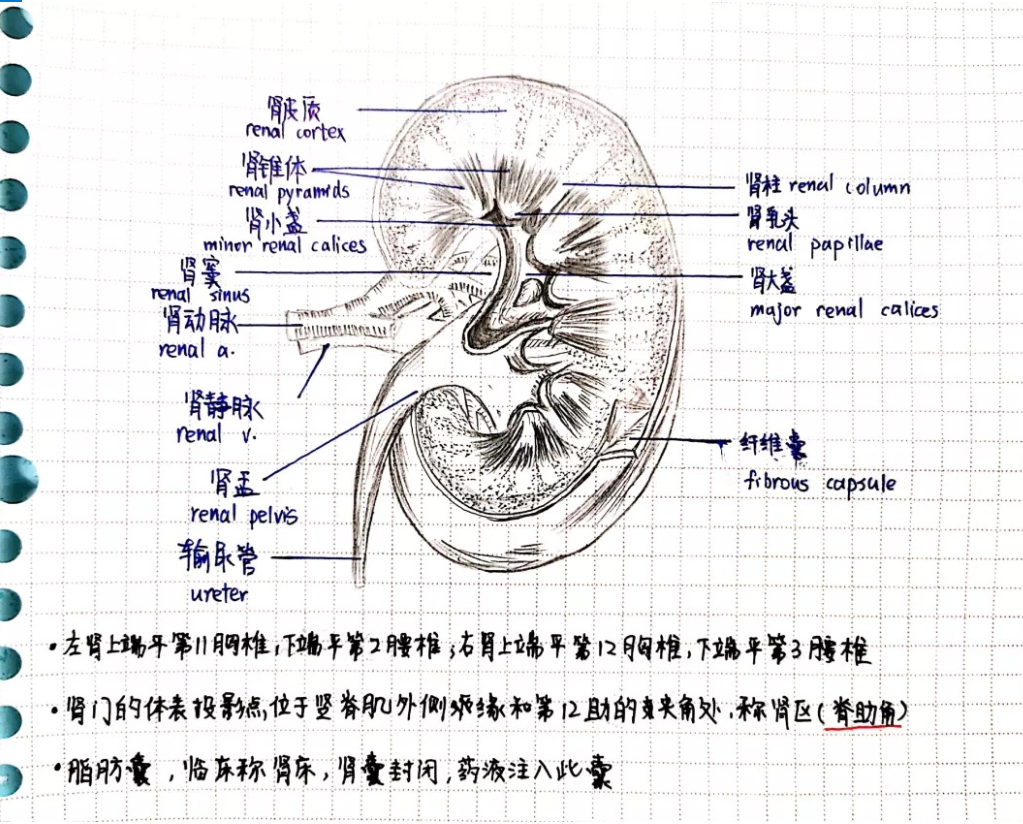 肾皮质
renal cortex
肾锥体
renal pyramids
肾小盏
minor renal calices
肾窦
renal sinus
肾动脉
renal a.
肾静脉
renal v.
肾盂
renal pelvis
输尿管
ureter
肾柱 renal column
肾乳头
renal papillae
肾大盏
major renal calices
纤维囊
fibrous capsule
·左肾上端平第11胸椎,下端平第2腰椎;右肾上端平第12胸椎,下端平第3腰椎
·肾门的体表投影点,位于竖脊肌外侧缘和第12助的夹角处,称肾区(脊助角)
·脂肪囊,临床称肾床,肾囊封闭,药液注入此囊